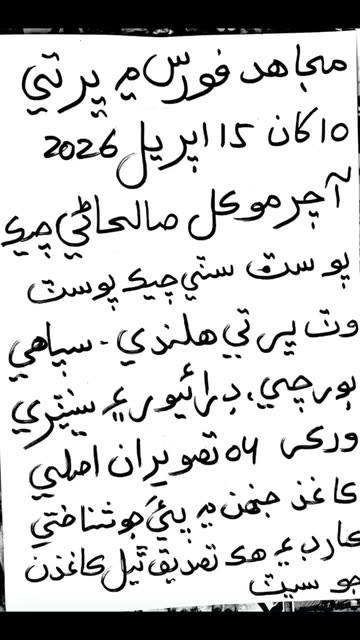 مجاهد فورس ۾ ڀرتي
10 کان 15 اپريل 2026
آچر موڪل صالحاڻي چيڪ
پوسٽ ستي چيڪ پوسٽ
وٽ ڀرتي هلندي - سپاهي
بورچي، ڊرائيور ۽ سينٽري
ورڪر 04 تصويران اصلي
ڪاغذ جنهن ۾ پيءُ جو شناختي
ڪارڊ ۽ هڪ تصديق ٿيل ڪاغذن
جو سيٽ